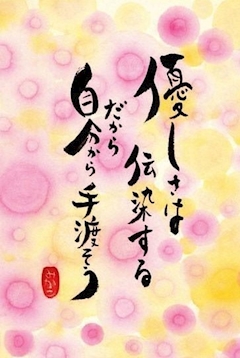 優しさは
伝染する
だから
自分から
手渡そう